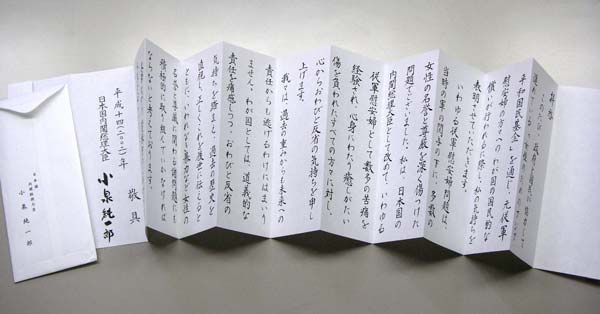 拝啓
このたび、政府と国民が協力して
進めている「女性のためのアジア
平和国民基金」を通じ、元従軍
慰安婦の方々へのわが国の国民的な
償いが行われるに際し、私の気持ちを
表明させていただきます。
いわゆる従軍慰安婦問題は、
当時の軍の関与の下に、多数の
女性の名誉と尊厳を深く傷つけた
問題でございました。私は、日本国の
内閣総理大臣として改めて、いわゆる
従軍慰安婦として数多の苦痛を
経験され、心身にわたり癒しがたい
傷を負われたすべての方々に対し、
心からおわびと反省の気持ちを申し
上げます。
我々は、過去の重みからも未来への
責任からも逃げるわけにはまいり
ません。わが国としては、道義的な
責任を痛感しつつ、おわびと反省の
気持ちを踏まえ、過去の歴史を
直視し、正しくこれを後世に伝えると
ともに、いわれなき暴力など女性の
名誉と尊厳に関わる諸問題にも
積極的に取り組んでいかなければ
ならないと考えております。
敬具
平成十四(二〇〇二)年
日本国内閣総理大臣
小泉純一郎
日本国内閣総理大臣
小泉純一郎